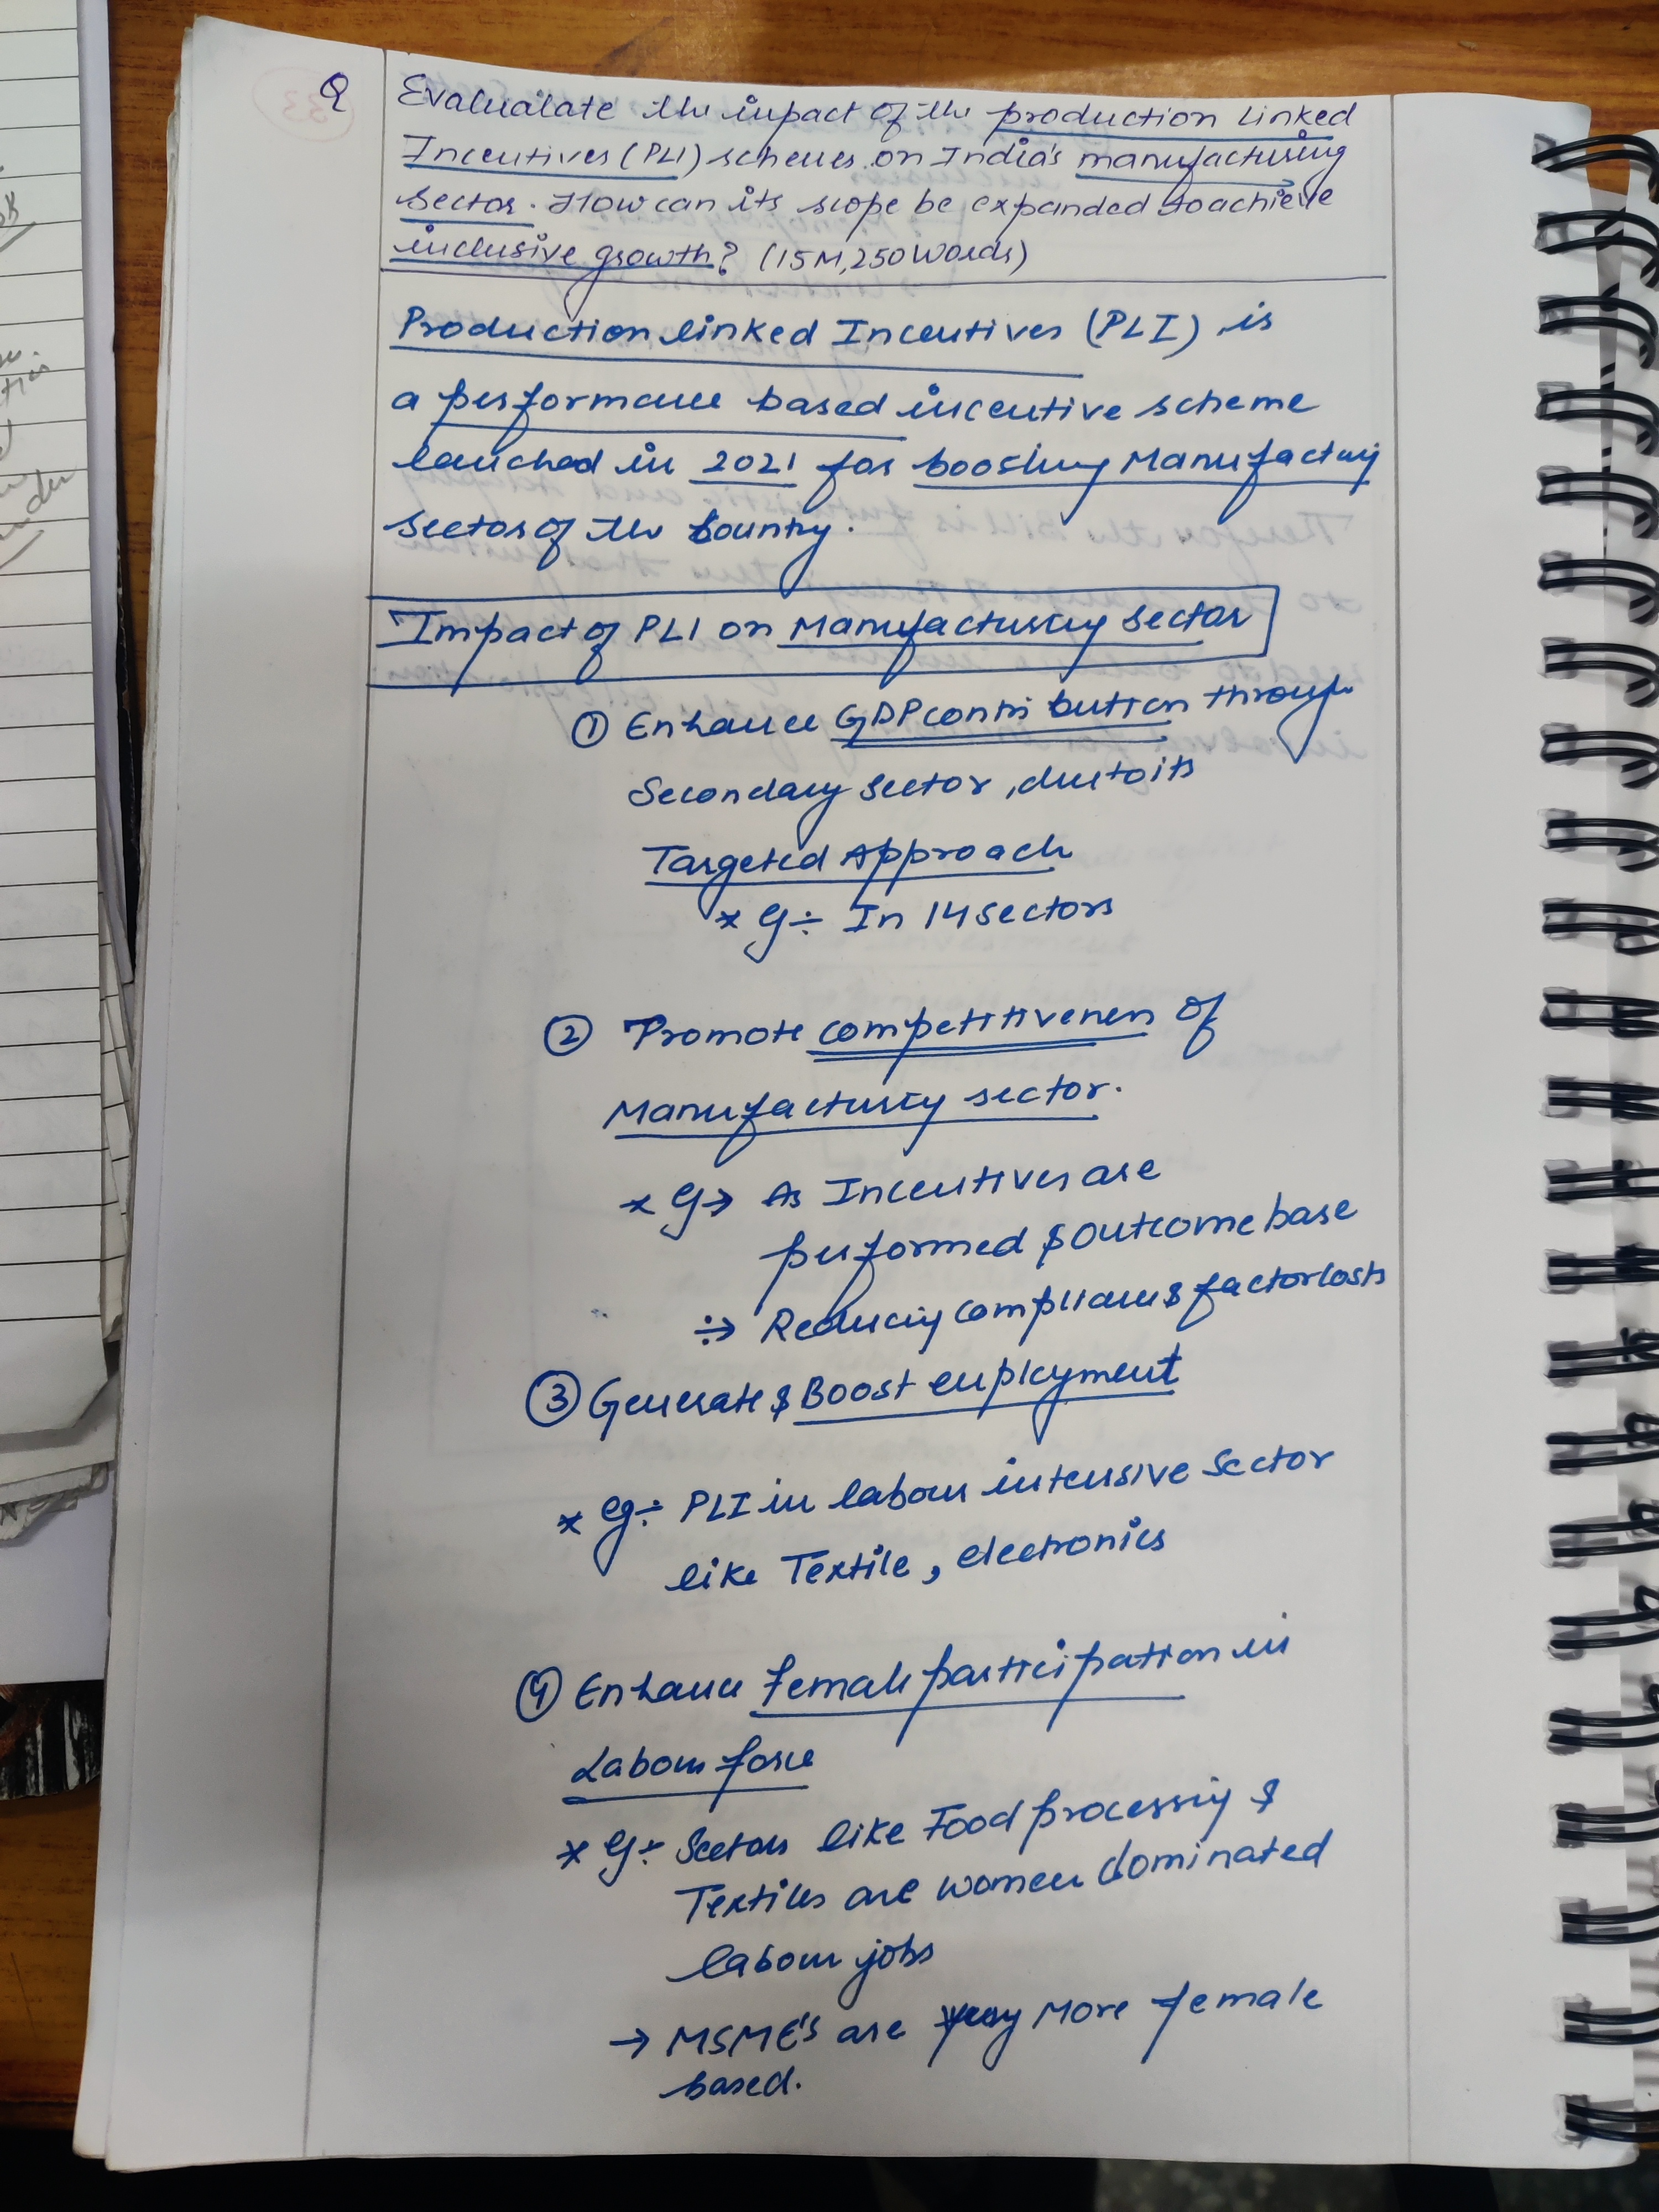 Q Evaluálate the impact of the production linked
Incentives (PLI) schemes on India's manufacturing
sector. How can its scope be expanded to achieve
inclusive growth? (15M, 250 Words)
Production linked Incentives (PLI) is
a performance based incentive scheme
lauched in 2021 for boosting Manufacturing
sector of the Country.
Impact of PLI on Manufacturing sector
① Enhance GDP contribution through
Secondary sector, due to its
Targeted Approach
* Eg ÷ In 14 sectors
② Promote competitiveness of
Manufacturing sector.
* Eg → As Incentives are
performed & outcome base
÷> Reducing compliance & factor costs
③ Generate & Boost employment
* eg ÷ PLI in labour intensive sector
like Textile, electronics
④ Enhance female participation in
Labour force
* Eg ÷ Sectors like Food processing &
Textiles are women dominated
labour jobs
→ MSME's are More female
based.